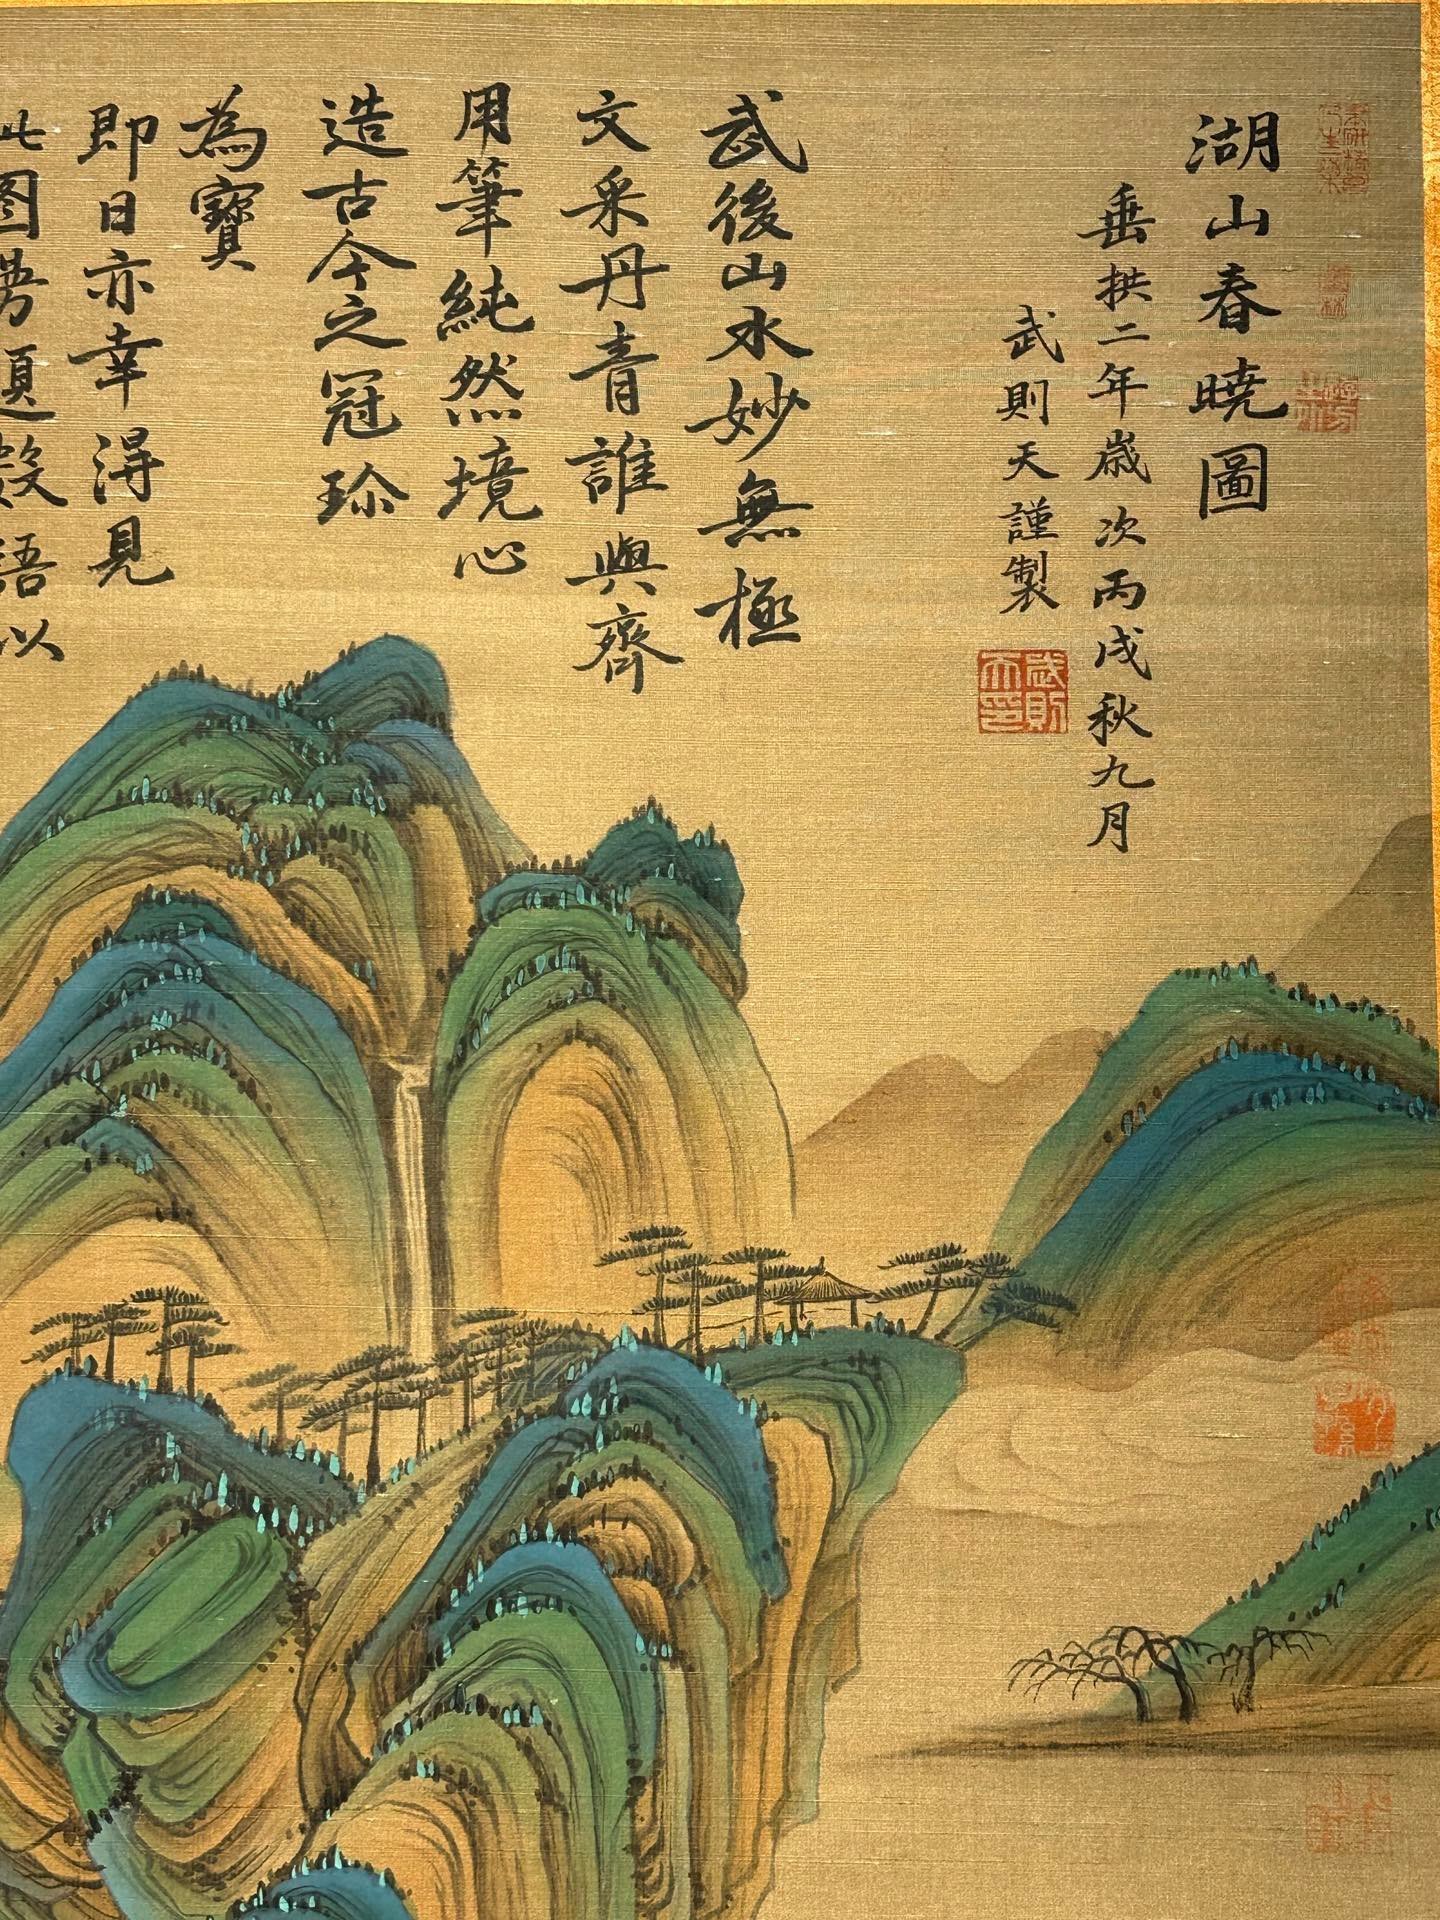 湖山春曉圖
垂拱二年歲次丙戌秋九月
武則天謹製
武則天印
武後山水妙無極
文采丹青誰與齊
用筆純然境心
造古今之冠珎
為寶
即日亦幸淂見
此图劵題数語以